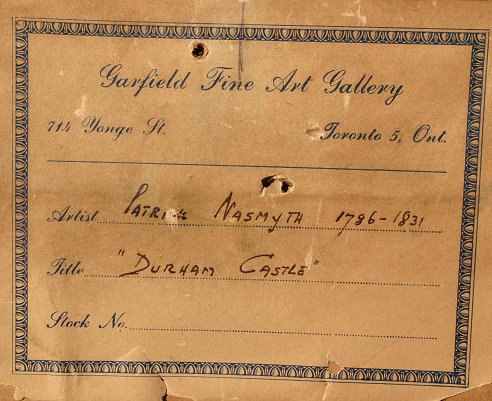 Garfield Fine Art Gallery
714 Yonge St. Toronto 5, Ont.
Artist Patrick Nasmyth 1786-1831
Title "Durham Castle"
Stock No.